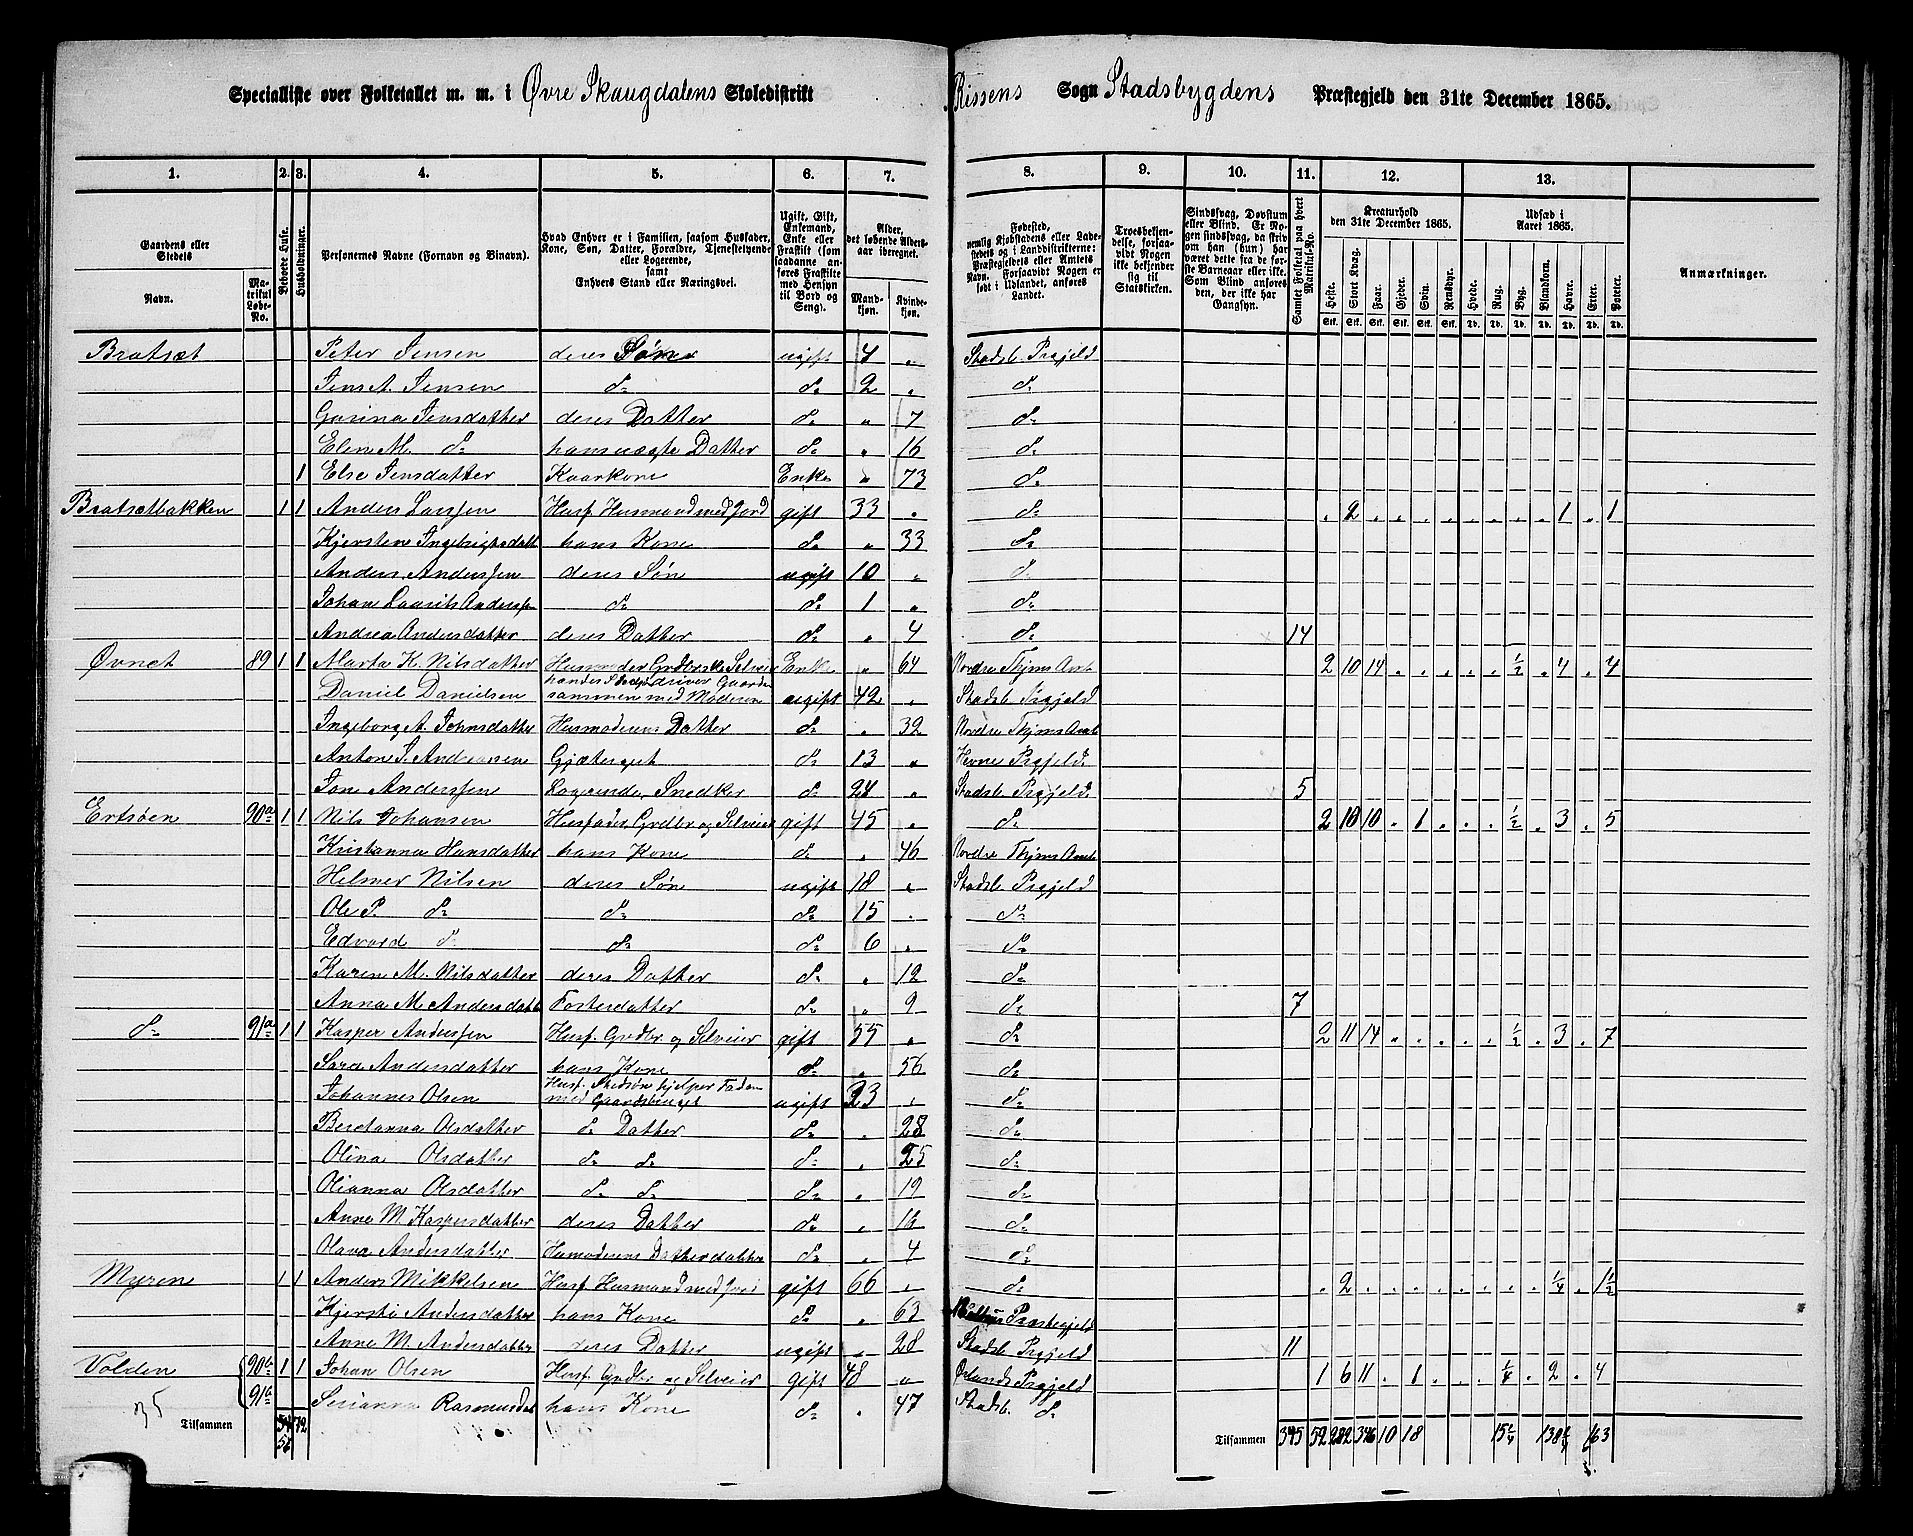 Specialliste over Folketallet m. m. i Øvre Skaugdalens Skoledistrikt Rissens Sogn Stadsbygdens Præstegjeld den 31te December 1865.
1. 2. 3. 4. 5. 6. 7. 8. 9. 10. 11. 12. 13.
Gaardens eller Stedets
Navn.
Matrikul Løbe-No.
Beboede Huse.
Husholdninger.
Personernes Navne (Fornavn og Binavn).
Hvad Enhver er i Familien, saasom Husfader, Kone, Søn, Datter, Forældre, Tjenestetyende eller Logerende, samt Enhvers Stand eller Næringsvei.
Ugift, Gift, Enkemand, Enke eller Fraskilt (som saadanne anføres Fraskilte med Hensyn til Bord og Seng).
Alder, det løbende Alders-aar iberegnet.
Mandkjøn.
Kvindekjøn.
Fødested, nemlig Kjøbstadens eller Ladestedets og i Landdistrikterne: Præstegjeldets eller Amtets Navn. Forsaavidt Nogen er født i Udlandet, anføres Landet.
Troesbekjendelse, forsaavidt Nogen ikke bekjender sig til Statskirken.
Sindssvag, Døvstum eller Blind. Er Nogen sindssvag, da skrives om han (hun) har været dette fra de første Barneaar eller ikke. Som Blind anføres den, der ikke har Gangsyn.
Samlet Folketal paa hvert Matrikul-No.
Kreaturhold den 31te December 1865.
Heste. Stort Kvæg. Faar. Gjeder. Svin. Rensdyr.
Udsæd i Aaret 1865.
Hvede. Rug. Byg. Blandkorn. Havre. Erter. Poteter.
Anmærkninger.
Bratsæt Peter Jensen deres Søn ugift 4 „ Stadsb. Prgjeld
Jens A. Jensen do do 2 „ do
Gurina Jensdatter deres Datter do „ 7 do
Elen M. do hans uægte Datter do „ 16 do
1 Else Jensdatter Kaarkone Enke „ 73 do
Bratsætbakken 1 1 Anders Larssen Husf. Husmand med Jord gift 33 „ do . 2 . . . . . . . . 1 . 1
Kjersten Ingebrigtsdatt. hans Kone do „ 33 do
Anders Anderssen deres Søn ugift 10 „ do
Johan Laurits Anderssen do do 1 „ do
Andrea Andersdatter deres Datter do „ 4 do 14
Øvnet 89 1 1 Marta K. Nilsdatter Husmoder Grdbrske Selveier Enke „ 64 Nordre Thjms Amt 2 10 14 . . . . . 1/2 . 4 . 4
Daniel Danielsen hendes Søn driver Gaarden sammen med Moderen ugift 42 „ Stadsb. Prgjeld
Ingeborg A. Johnsdatter Husmoderens Datter do „ 32 Nordre Thjms Amt
Anton J. Andreasen Gjætergut do 13 „ Hevne Prgjeld.
Jon Anderssen Logerende, Snedker do 24 „ Stadsb. Prgjeld. 5
Ertsøen 90a 1 1 Nils Johansen Husfader, Grdbr og Selveier gift 45 „ do 2 10 10 . 1 . . . 1/2 . 3 . 5
Kristanna Hansdatter hans Kone do „ 46 Nordre Thjms Amt
Helmer Nilsen deres Søn ugift 18 „ Stadsb Prgjeld
Ole P. do do do 15 „ do
Edvard do do do 6 „ do
Karen M. Nilsdatter deres Datter do „ 12 do
Anna M. Andersdatt. Fosterdatter do „ 9 do 7
do 91a 1 1 Kasper Anderssen Husf. Grdbr. og Selveier gift 55 „ do 2 11 14 . . . . . 1/2 . 3 . 7
Sara Andersdatter hans Kone do „ 56 do
Johannes Olsen Husf. Stedsøn hjelper Faderen med Gaardsbruget ugift 23 „ do
Beretanna Olsdatter do Datter do „ 28 do
Olina Olsdatter do do do „ 25 do
Olianna Olsdatter do do do „ 19 do
Anne M. Kaspersdatter deres Datter do „ 16 do
Olava Andersdatter Husmoderens Datterdatter do „ 4 do
Myren 1 1 Anders Mikkelsen Husf. Husmand med Jord gift 66 „ do . 2 . . . . . . . . 1/4 . 1 1/2
Kjersti Andersdatter hans Kone do „ 63 Præstegjeld
Anne M. Andersdatter deres Datter ugift „ 28 Stadsb Prgjeld 11
Volden 90b 1 1 Johan Olsen Husf. Grdbr og Selveier gift 48 „ Ørlands Prgjeld 1 6 11 . 1 . . . 1/4 . 2 . 4
91b Serianna Rasmusdat hans Kone do „ 47 Stadsb. do
35
Tilsammen 54 72
56
Tilsammen 345 52 282 346 10 18 15 1/4 138 1/4 163